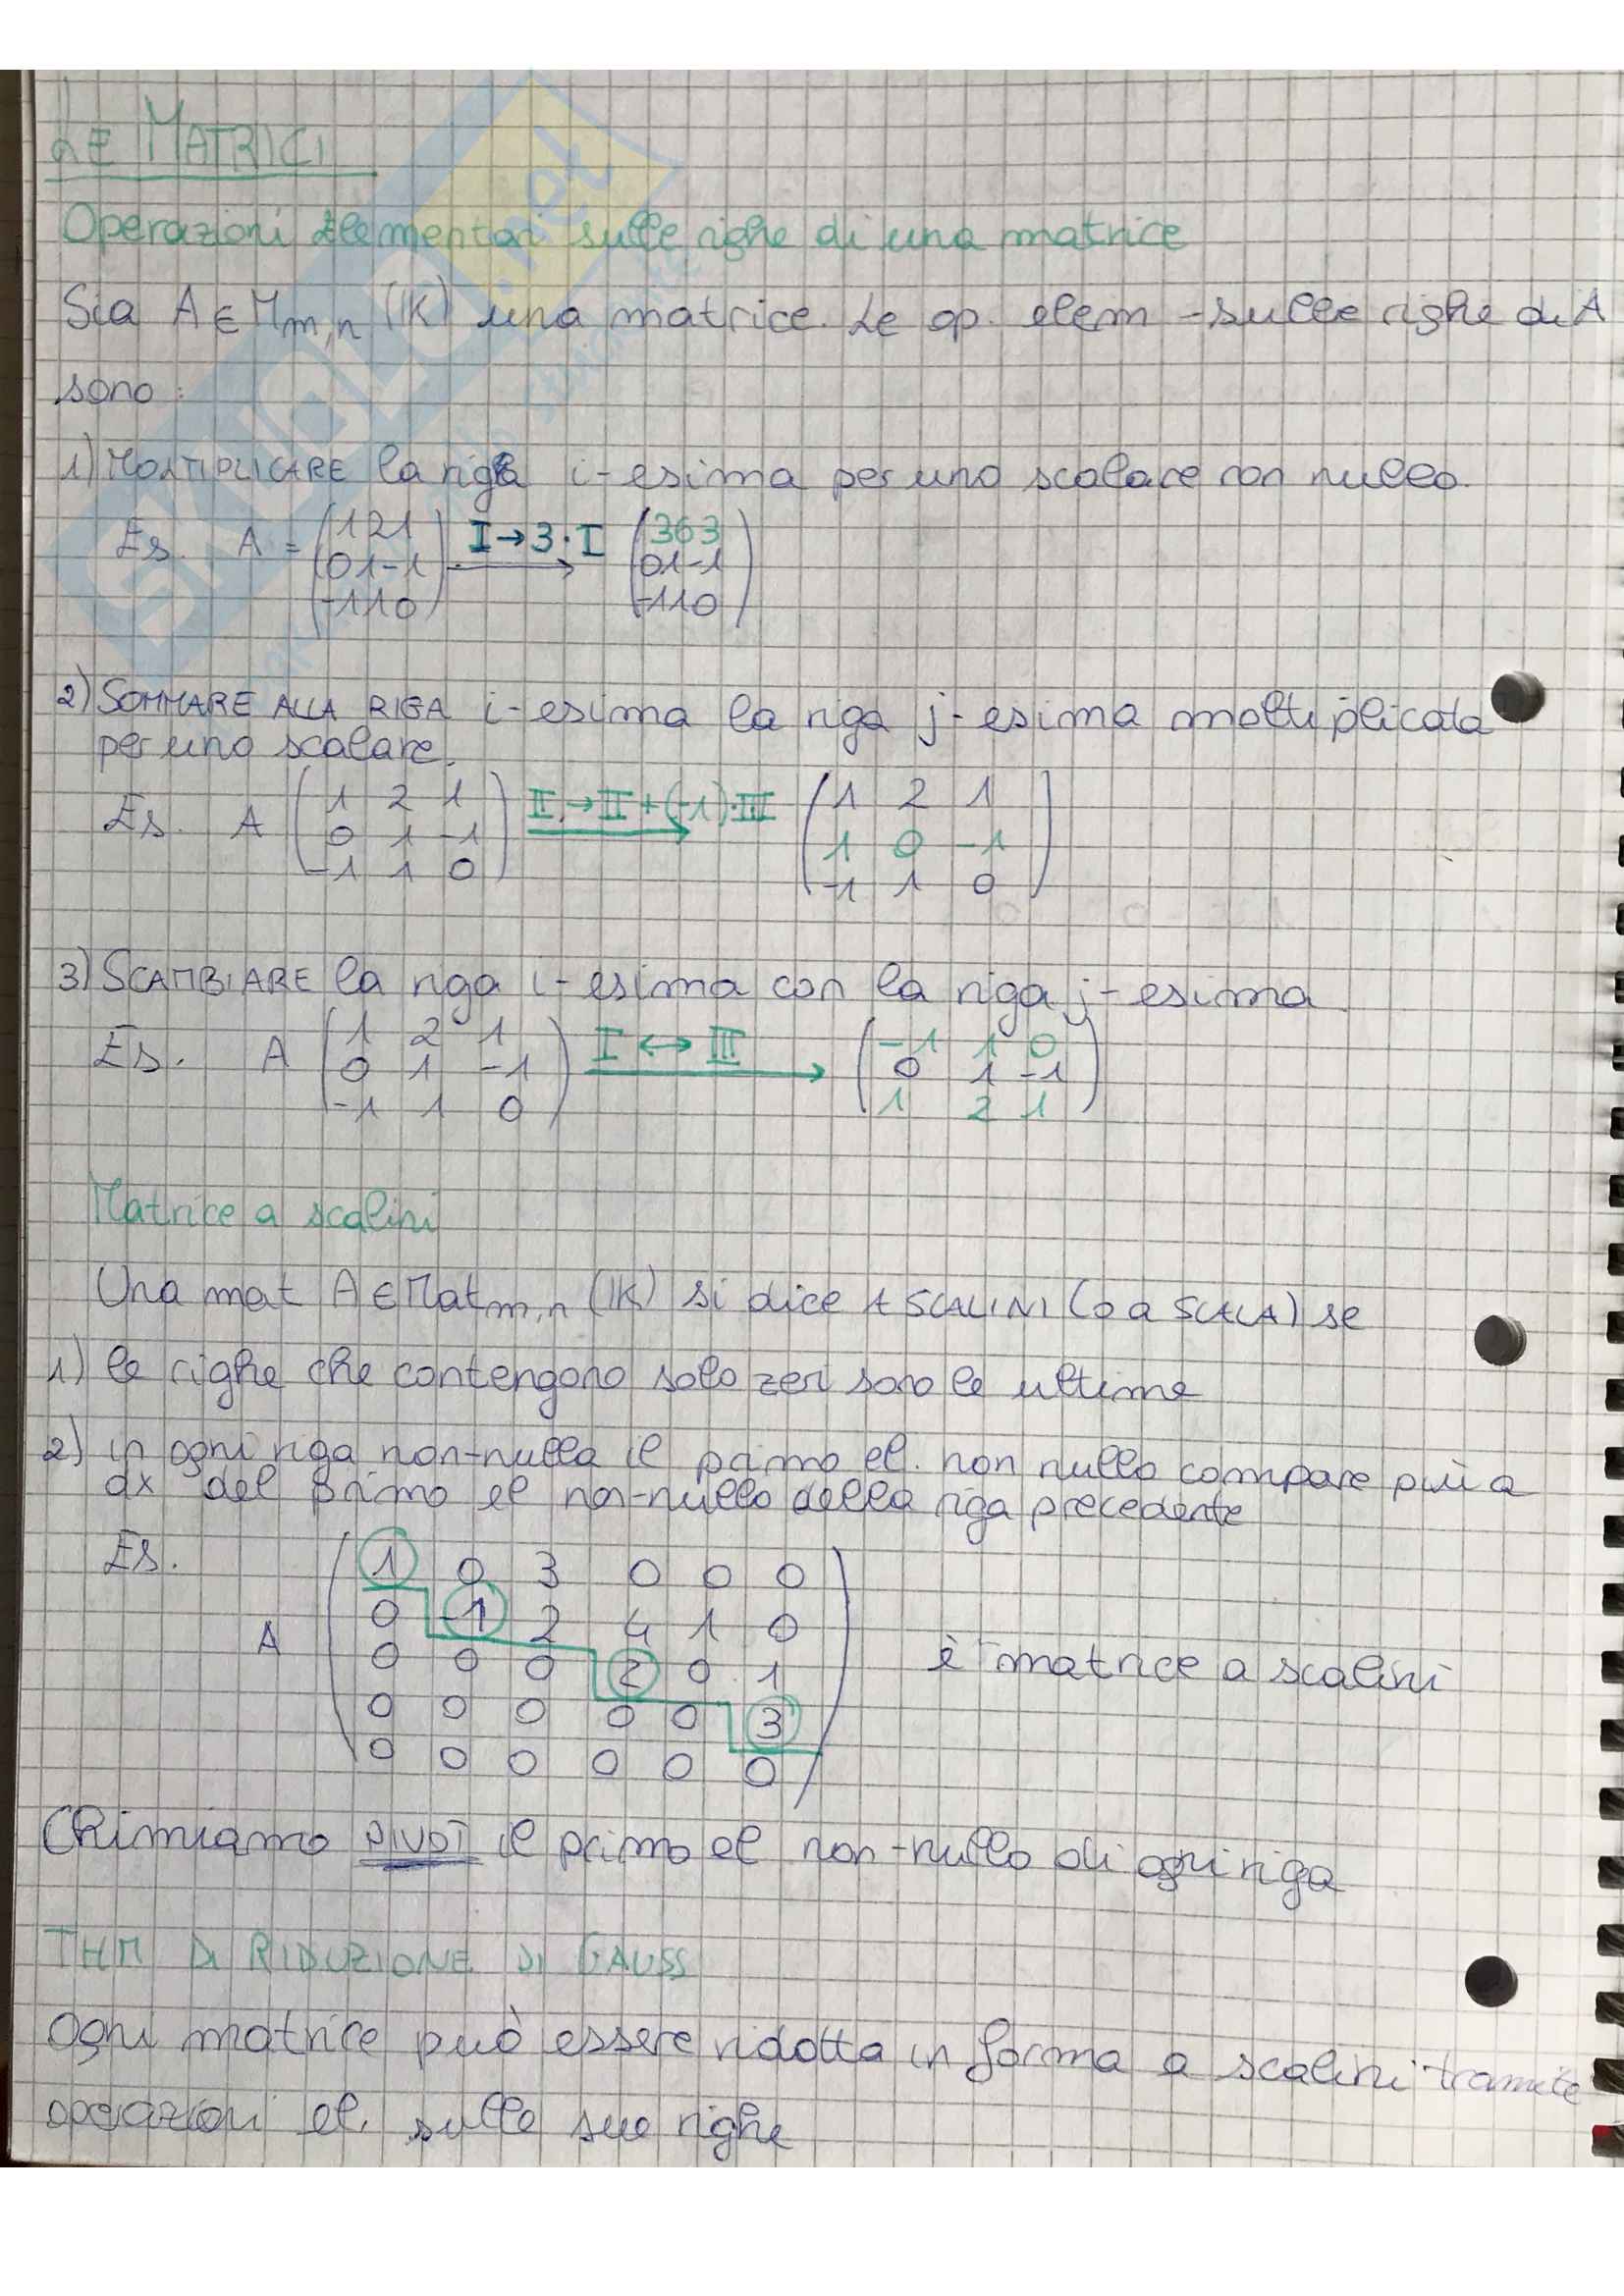 LE MATRICI
Operazioni elementari sulle righe di una matrice
Sia A ∈ Mm,n (IK) una matrice. Le op. elem sulle righe di A
sono:
1) MOLTIPLICARE la riga i-esima per uno scalare non nullo.
Es. A = (1 2 1) I→3·I (3 6 3)
(0 1 -1) (0 1 -1)
(-1 1 0) (-1 1 0)
2) SOMMARE ALLA RIGA i-esima la riga j-esima moltiplicata
per uno scalare.
Es. A (1 2 1) II→II+(-1)·III (1 2 1)
(0 1 -1) (1 0 -1)
(-1 1 0) (-1 1 0)
3) SCAMBIARE la riga i-esima con la riga j-esima
Es. A (1 2 1) I↔III (-1 1 0)
(0 1 -1) (0 1 -1)
(-1 1 0) (1 2 1)
Matrice a scalini
Una mat A ∈ Matm,n (IK) si dice A SCALINI (o a SCALA) se
1) le righe che contengono solo zeri sono le ultime
2) in ogni riga non-nulla il primo el. non nullo compare più a
dx del primo el non-nullo della riga precedente
Es.
1 0 3 0 0 0
0 -1 2 4 1 0
A 0 0 0 2 0 1 è matrice a scalini
0 0 0 0 0 3
0 0 0 0 0 0
Chimiamo PIVOT il primo el non-nullo di ogni riga
THM DI RIDUZIONE DI GAUSS
Ogni matrice può essere ridotta in forma a scalini tramite
operazioni el. sulle sue righe